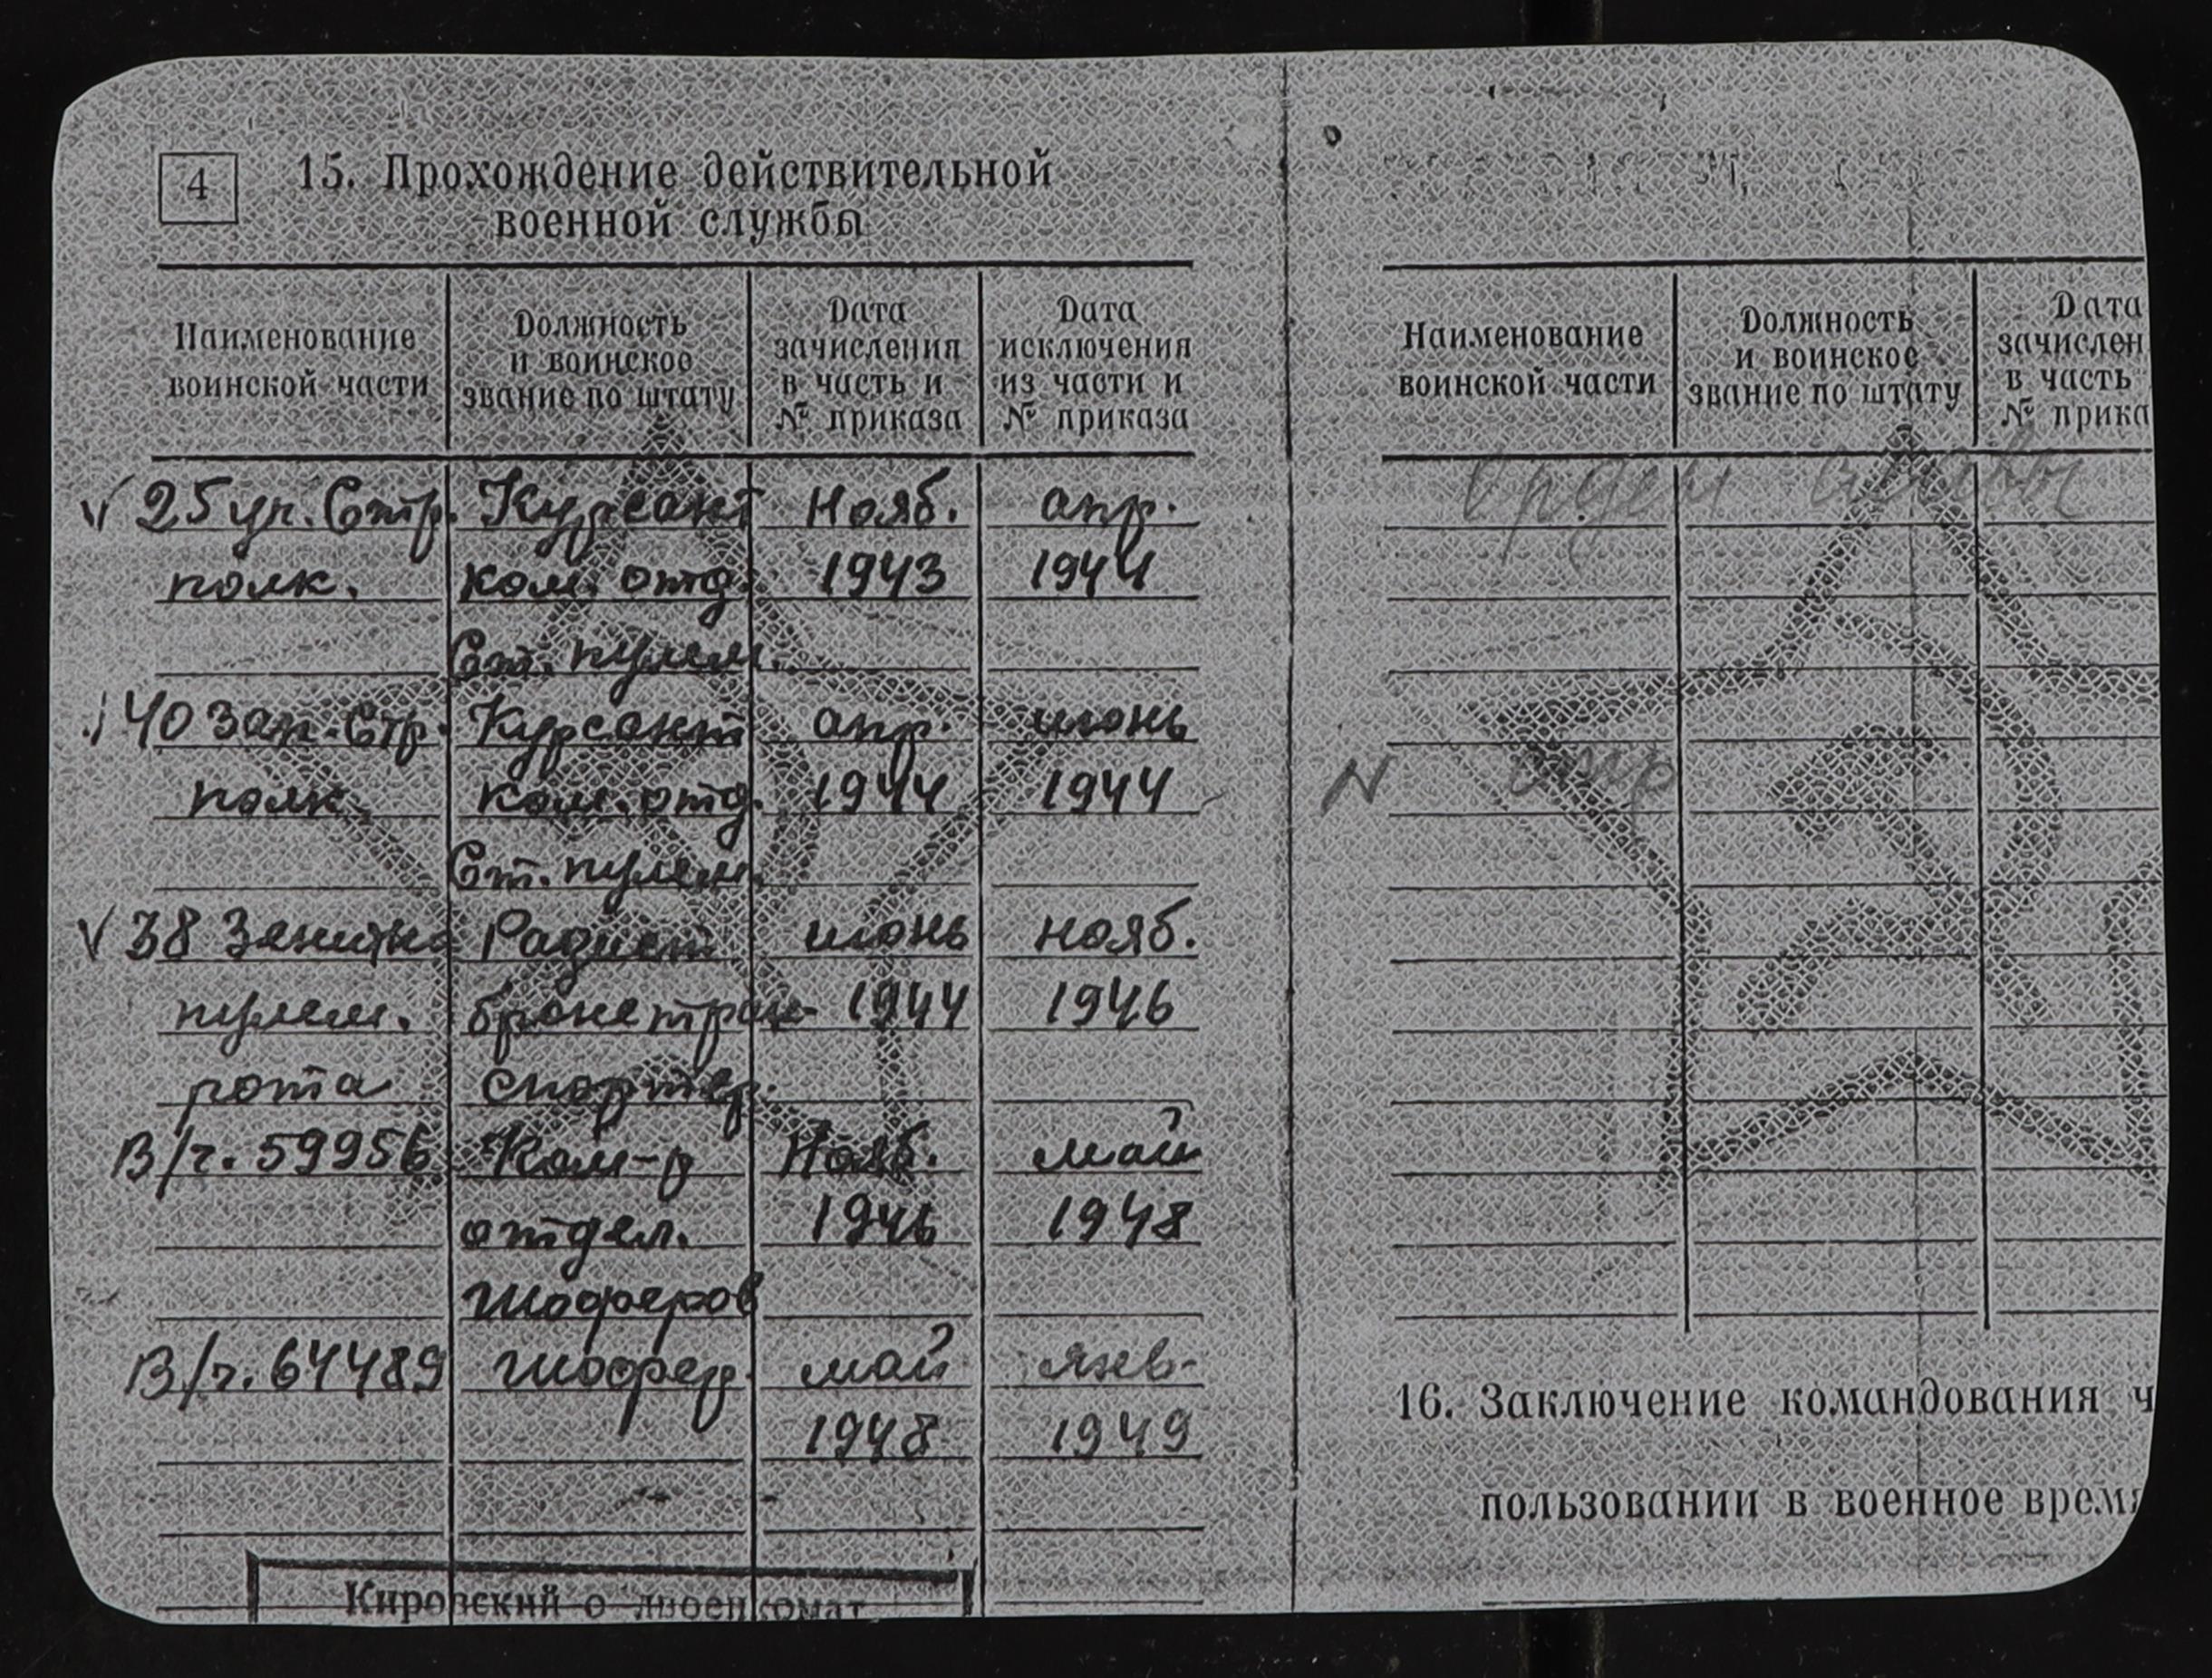 4
15. Прохождение действительной
военной службы
Наименование
воинской части
Должность
и воинское
звание по штату
Дата
зачисления
в часть и
№ приказа
Дата
исключения
из части и
№ приказа
V 25 уч. Стр. Курсант Нояб. апр.
полк. ком. отд. 1943 1944
Ст. пулем.
40 Зап. Стр. Курсант апр. июнь
полк. Ком. отд. 1944 1944
Ст. пулем.
V 38 Зенитно Радист июнь нояб.
пулем. бронетран- 1944 1946
рота спортер.
В/ч. 59956 Ком-р Нояб. май
отдел. 1946 1948
шоферов
В/ч. 64489 шофер. май янв.
1948 1949
Кировский
Наименование
воинской части
Должность
и воинское
звание по штату
Дата
зачислен
в часть
№ прика
Орден
N стр
16. Заключение командования ч
пользовании в военное время